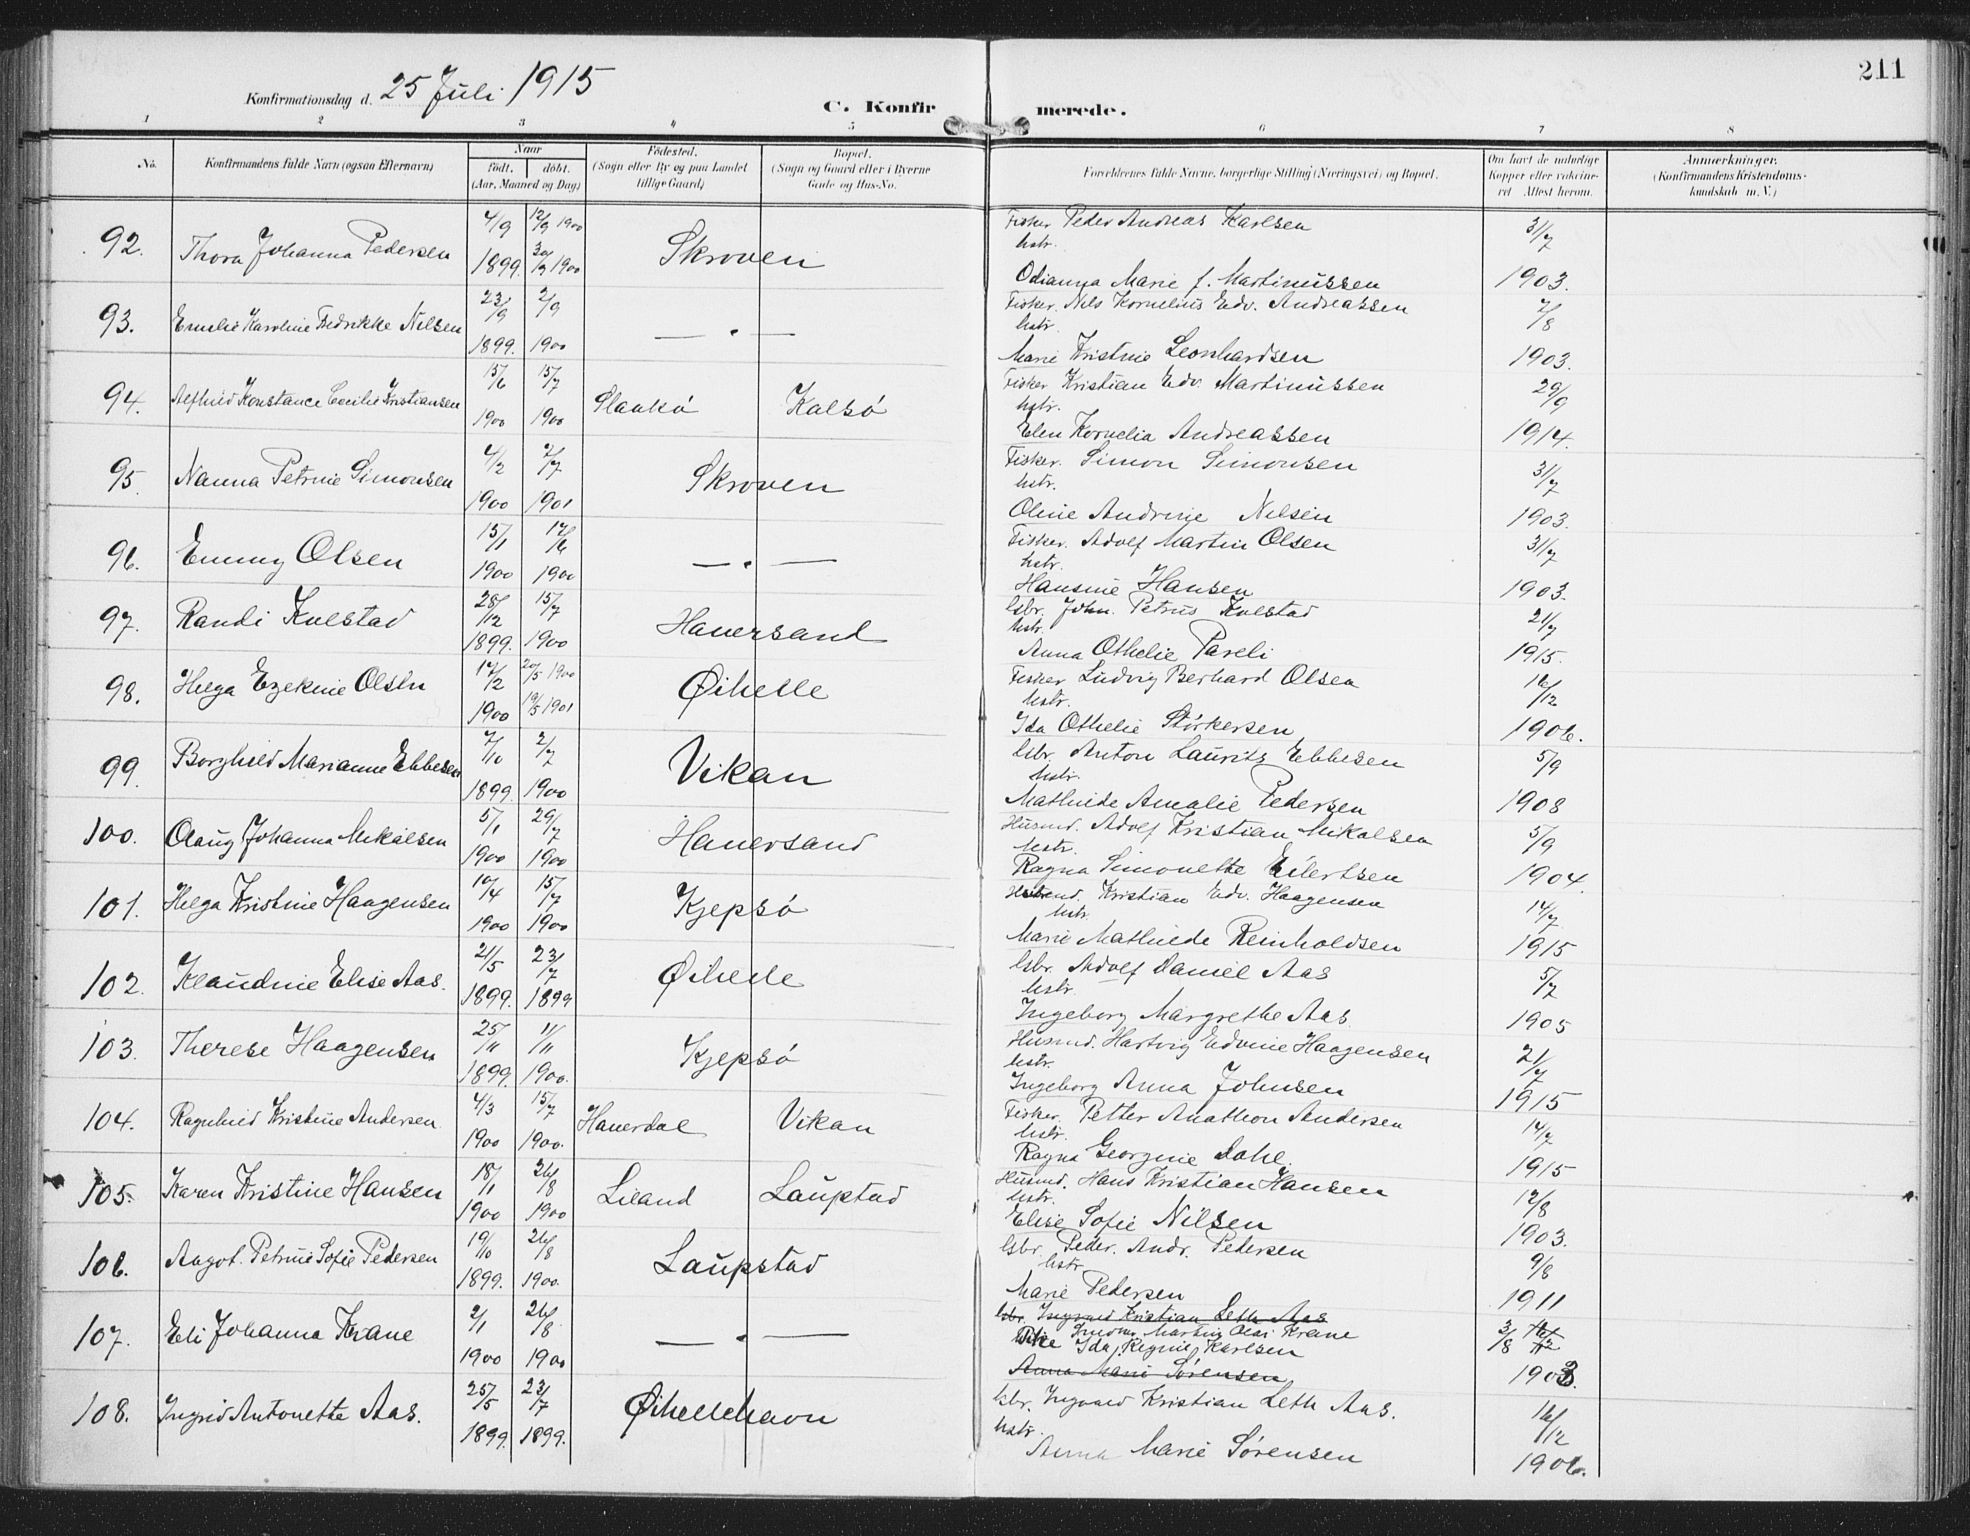 211
Konfirmationsdag d. 25 Juli 1915
C. Konfirmerede.
1 2 3 4 5 6 7 8
No. Konfirmandens fulde Navn (ogsaa Efternavn) Naar födt. döbt. (Aar, Maaned og Dag) Födested. (Sogn eller By og paa Landet tillige Gaard) Bopæl. (Sogn og Gaard eller i Byerne Gade og Hus-No. Forældrenes fulde Navne, borgerlige Stilling (Næringsvei) og Bopæl. Om havt de naturlige Kopper eller vakcineret. Attest herom. Anmærkninger. (Konfirmandens Kristendomskundskab m. V.)
92. Thora Johanna Pedersen 4/9 1899. 12/9 1900 30/9 1900 Skroven Fisker Peder Andreas Karlsen hstr. Odianna Marie f. Martinussen 31/7 1903.
93. Emelie Karoline Fredrikke Nilsen 23/9 1899. 2/9 1900 — " — Fisker. Nils Kornelius Edv. Andreassen hstr. Marie Kristine Leonhardsen 7/8 1903.
94. Alfhild Konstance Cecilie Kristiansen 15/6 1900 15/7 1900 Slaakö Kalsö Fisker Kristian Edv. Martinussen hstr. Elen Kornelia Andreassen 29/9 1914.
95. Nanna Petrine Simonsen 4/2 1900 7/7 1901 Skroven Fisker. Simon Simonsen hstr. Oline Andrine Nilsen 31/7 1903.
96. Emmy Olsen 15/1 1900 17/6 1900 — " — Fisker. Adolf Martin Olsen hstr. Hansine Hansen 31/7 1903.
97. Randi Kulstad 28/12 1899. 15/7 1900 Hanersand Gbr. John. Petrus Kulstad hstr. Anna Othelie Pareli 21/7 1915.
98. Helga Ezekine Olsen 17/2 1900 20/5 1900 19/5 1901 Øihelle Fisker Ludvig Berhard Olsen hstr. Ida Othelie Störkersen 16/12 1906.
99. Borghild Marianne Ebbesen 7/10 1899. 2/7 1900 Vikan Gbr. Anton Lauritz Ebbesen hstr. Mathilde Amalie Pedersen 5/9 1908
100. Olaug Johanna Mikalsen 5/1 1900 29/7 1900 Hanersand Husmd. Adolf Kristian Mikalsen hstr. Ragna Simonette Eilertsen 5/9 1904.
101. Helga Kristine Haagensen 10/4 1900 15/7 1900 Kjepsö Husmd. Kristian Edv. Haagensen hstr. Marie Mathilde Reinholdsen 14/7 1915
102. Klaudine Elise Aas. 21/5 1899. 23/7 1899 Øihelle Gbr. Adolf Daniel Aas hstr. Ingeborg Margrethe Aas 5/7 1905
103. Therese Haagensen 25/11 1899. 1/11 1900. Kjepsö Husmd. Hartvig Edvine Haagensen hstr. Ingeborg Anna Johnsen 21/7 1915
104. Ragnhild Kristine Andersen 4/3 1900 15/7 1900. Hanerdal Vikan Fisker. Petter Anathon Andersen hstr. Ragna Georgine Dahl. 14/7 1915
105. Karen Kristine Hansen 18/1 1900 26/8 1900 Liland Laupstad Husmd. Hans Kristian Hansen hstr. Elise Sofie Nilsen 12/8 1903.
106. Aagot. Petrine Sofie Pedersen 19/10 1899. 26/8 1900. Laupstad Gbr. Peder. Andr. Pedersen hstr Marie Pedersen 9/8 1911
107. Eli Johanna Krane 2/1 1900 26/8 1900 — " — Gbr. Ingvard Kristian Leth Aas Martin Olai Krane Pike Ida Regine Karlsen Anna Marie Sörensen 3/8 16/12 1903.
108. Ingrid Antonette Aas. 25/5 1899. 23/7 1899. Øihellehavn Gbr. Ingvard Kristian Leth Aas. hstr. Anna Marie Sörensen 16/12 1906.